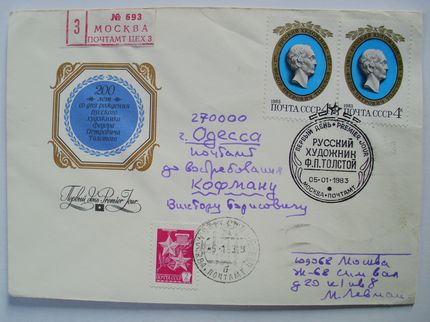 № 693
З
МОСКВА
ПОЧТАМТ ЦЕХ 3
200
лет
со дня рождения
русского
художника
Федора
Петровича
Толстого
Первый день Premier Jour
1983
ПОЧТА СССР 4к
1983
ПОЧТА СССР 4к
ПЕРВЫЙ ДЕНЬ • PREMIER JOUR
РУССКИЙ
ХУДОЖНИК
Ф.П.ТОЛСТОЙ
05-01-1983
МОСКВА • ПОЧТАМТ
270000
г. Одесса
почтамт
до востребования
Кофману
Виктору Борисовичу
МОСКВА • ПОЧТАМТ
109068 Москва
М. Левман